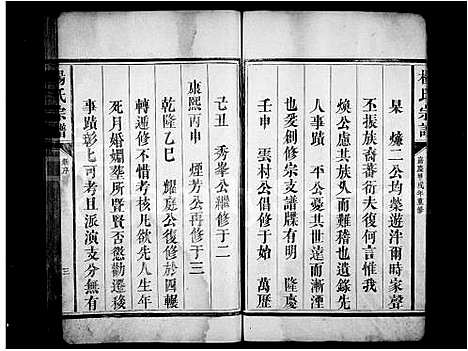 楊氏宗譜
嘉慶甲戌年重修
杲 燫二公均蒙遊泮爾時家聲
丕振族裔蕃衍夫復何言惟我
煥公慮其族大而難稽也遺錄先
人事蹟 平公憂其世遠而漸湮
也爰創修宗支譜牒有明 隆慶
壬申 雲村公倡修于始 萬歷
己丑 秀峯公繼修于二
康熙丙申 煙芳公再修于三
乾隆乙巳 耀庭公復修於四輾
轉遞修不惜考核凡欲先人生年
死月婚媾塟所暨賢否懲勸遷移
事蹟彰彰可考且派演支分無有
楊氏宗譜
序
三